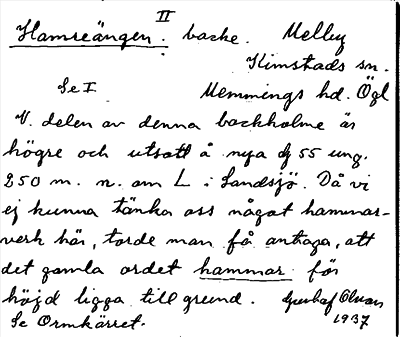 II
Hamreängen. backe. Melby
Kimstads sn.
Se I Memmings hd. Ögl
V. delen av denna backholme är
högre och utsatt å nya Gj 55 ung.
250 m. n. om L i Landsjö. Då vi
ej kunna tänka oss något hammar-
verk här, torde man få antaga, att
det gamla ordet hammar för
höjd ligga till grund. Gustaf Olsson
Se Ormkärret. 1937